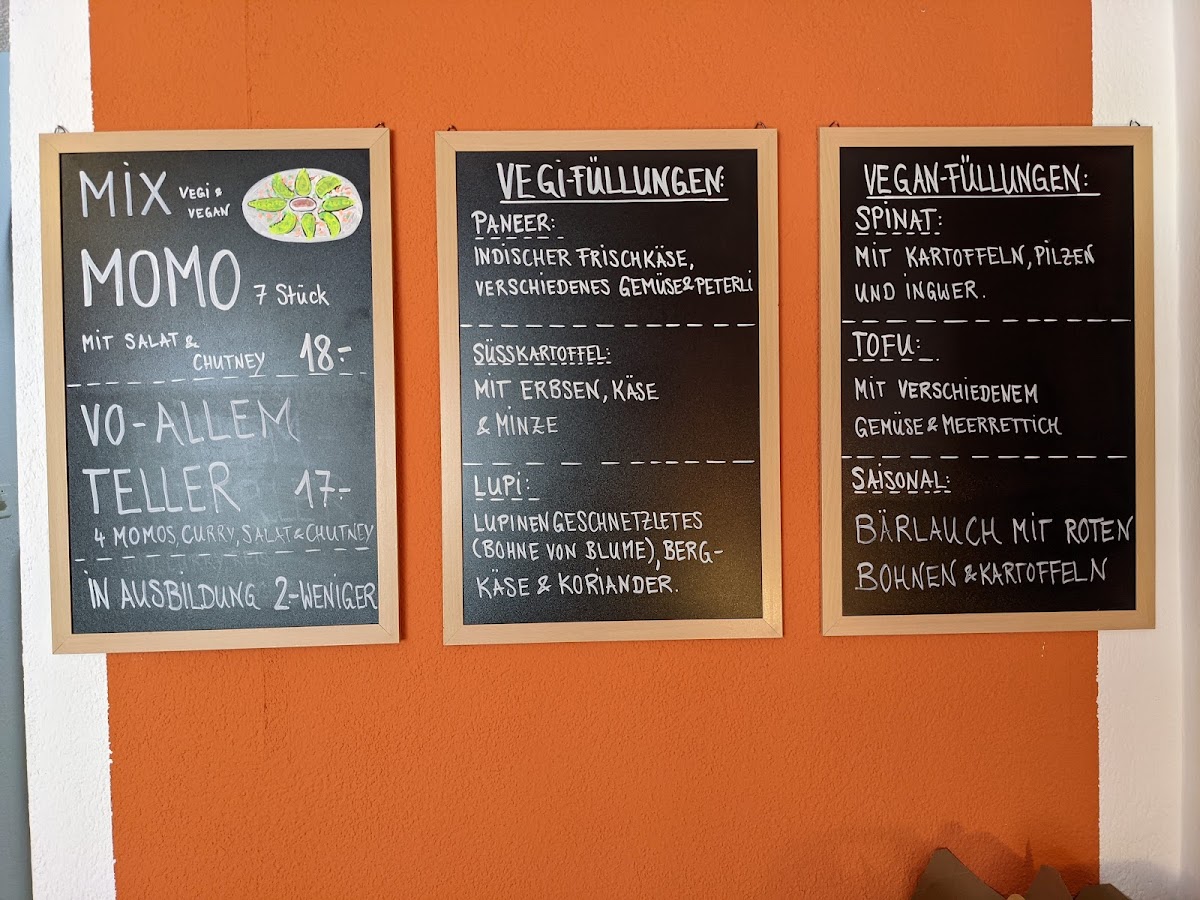 MIX VEGI &
VEGAN
MOMO 7 Stück
MIT SALAT &
CHUTNEY 18.-
VO-ALLEM
TELLER 17.-
4 MOMOS, CURRY, SALAT & CHUTNEY
IN AUSBILDUNG 2.- WENIGER
VEGI-FÜLLUNGEN:
PANEER:
INDISCHER FRISCHKÄSE,
VERSCHIEDENES GEMÜSE & PETERLI
SÜSSKARTOFFEL:
MIT ERBSEN, KÄSE
& MINZE
LUPI:
LUPINENGESCHNETZLETES
(BOHNE VON BLUME), BERG-
KÄSE & KORIANDER.
VEGAN-FÜLLUNGEN:
SPINAT:
MIT KARTOFFELN, PILZEN
UND INGWER.
TOFU:
MIT VERSCHIEDENEM
GEMÜSE & MEERRETTICH
SAISONAL:
BÄRLAUCH MIT ROTEN
BOHNEN & KARTOFFELN